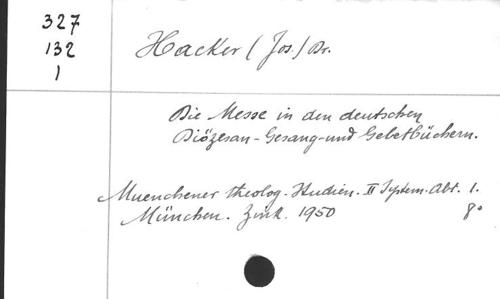 327
132
1
Hacker (Jos.) Dr.
Die Messe in den deutschen
Diözesan-Gesang-und Gebetbüchern.
Muenchener theolog. Studien. II System. Abt. 1.
München. Zink. 1950 8°